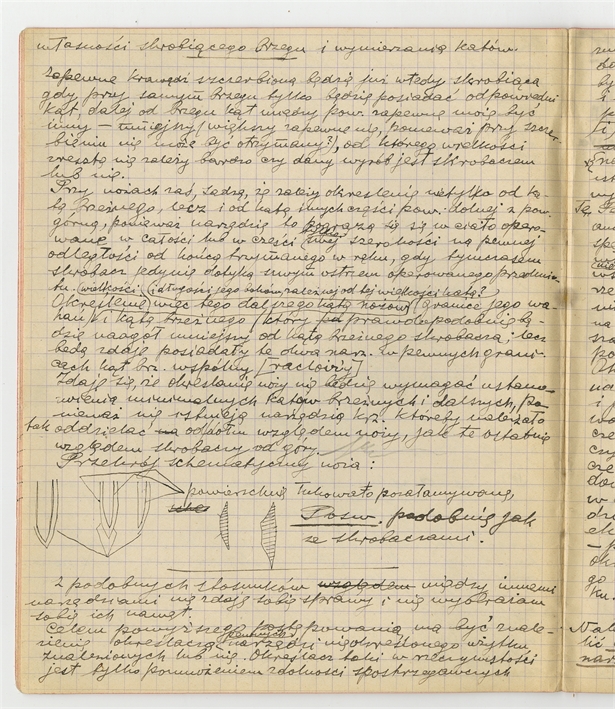 własności skrobiącego brzegu i wymierzania kątów.
Zapewne krawędź szczerbiona będzie już wtedy skrobiąca
gdy, przy samym brzegu tylko będzie posiadać odpowiedni
kąt, dalej od brzegu kąt między pow. zapewne może być
inny – mniejszy (większy zapewne nie, ponieważ przy szczer-
bieniu nie może być otrzymany?), od którego wielkości
zresztą nie zależy bardzo czy dany wyrób jest skrobaczem
lub nie.
Przy nożach zaś, sądzę, że zależy określenie nietylko od ką-
ta brzeżnego, lecz i od kąta innych części pow. dolnej z pow.
górną, ponieważ narzędzie to pogrąża się w ciało opero-
wane w całości lub w części swej szerokości na pewnej
odległości od końca trzymanego w ręku, gdy tymczasem
skrobacz jedynie dotyka swym ostrzem operowanego przedmio-
tu. (wielkości i długości jego boków zależnej od tej wielkości kąta?
Określenie więc tego dalszego kąta nożów (granice jego wa-
hań) i kąta brzeżnego (który prawdopodobnie bę-
dzie naogół mniejszy od kąta brzeżnego skrobacza; lecz
będą zdaje posiadały te dwa narz. w pewnych grani-
cach kąt brz. wspólny)
Zdaje się, że określanie noży nie będzie wymagać ustano-
wienia minimalnych kątów brzeżnych i dalszych, po-
nieważ nie istnieją narzędzia krz. któreby należało
tak oddzielać od dołu względem noży, jak te ostatnie
względem skrobaczy od góry.
Przekrój schematyczny noża:
powierzchnie łuskowato pozałamywane,
Posw. podobnie jak
ze skrobaczami.
Z podobnych stosunków względem między innemi
narzędziami nie zdaję sobie sprawy i nie wyobrażam
sobie ich nawet.
Celem powyższego postępowania ma być znale-
zienie określacza pewnych narzędzi nieokreślonego użytku
znalezionych lub nie. Określacz taki w rzeczywistości
jest tylko pomnożeniem zdolności spostrzegawczych